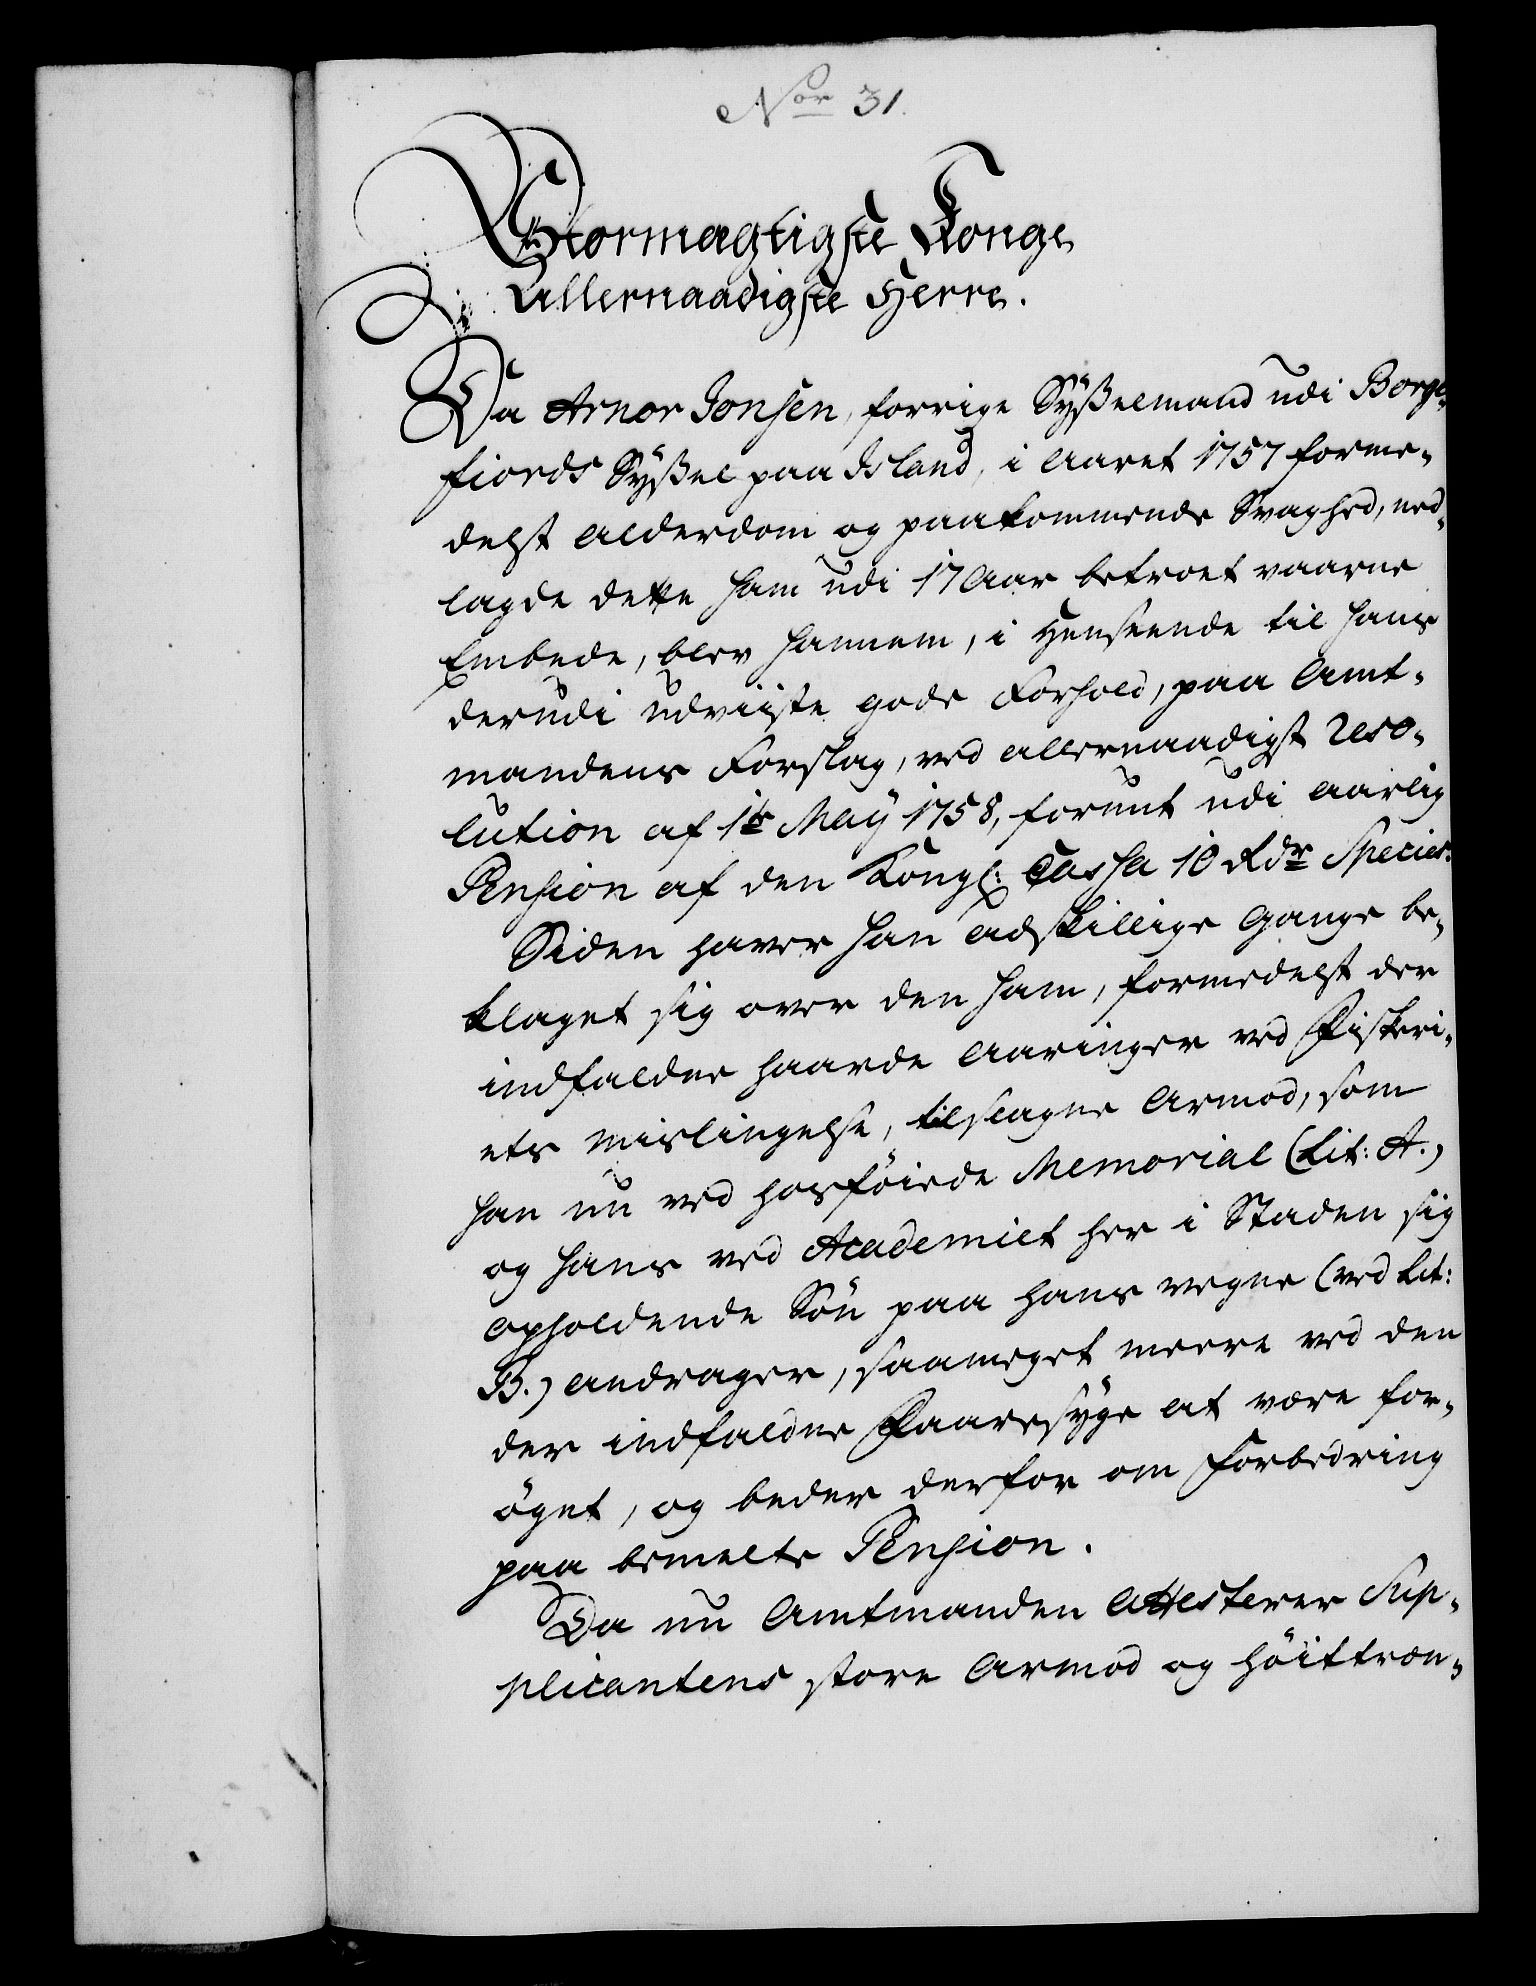 Nor 31.
Stormægtigste Konge
Allernaadigste Herre.
Da Arnor Jonsen, forrige Sÿßelmand udi Borge-
fiords Sÿßel paa Island, i Aaret 1757 forme-
delst Alderdom og paakommende Svaghed, ned-
lagde dette ham udi 17 Aar betroet vaarne
Embede, blev hannem, i Henseende til hans
derudi udviiste gode Forhold, paa Amt-
mandens Forslag, ved allernaadigst Reso-
lution af 1te Maÿ 1758, forunt udi aarlig
Pension af den Kongl: Cassa 10 Rdr Species.
Siden haver han adskillige Gange be-
klaget sig over den ham, formedelst der
indfaldne haarde Aaringer ved Fiskeri-
ets mislingelse, tilslagne Armod, som
han nu ved hosföiede Memorial (Lit: A.)
og hans ved Academiet her i Staden sig
opholdende Sön paa hans vegne (ved Lit:
B.) andrager, saameget meere ved den
der indfaldne Faaresÿge at være for-
öget, og beder derfor om Forbedring
paa bemelte Pension.
Da nu Amtmanden attesterer Sup-
plicantens store Armod og höittræn-